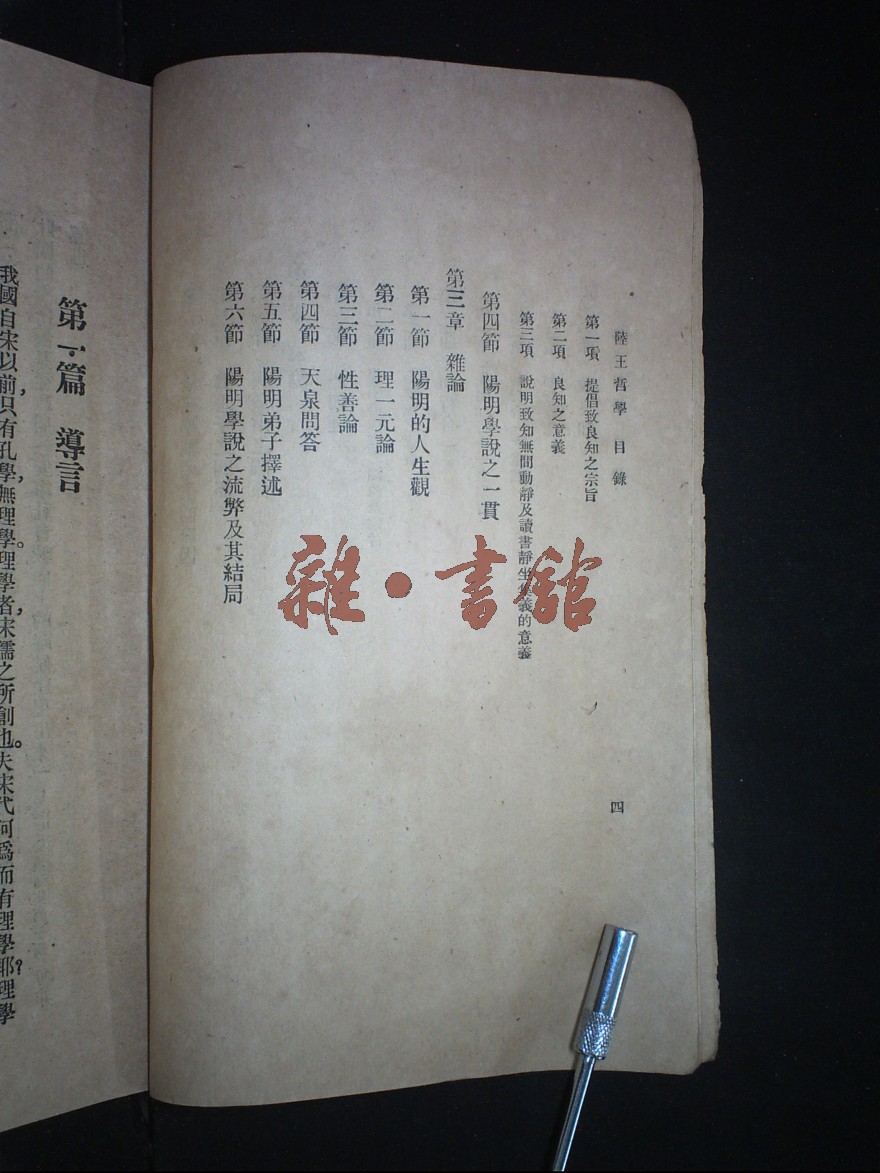 陸王哲學 目錄
四
第一項 提倡致良知之宗旨
第二項 良知之意義
第三項 說明致知無間動靜及讀書靜坐集義的意義
第四節 陽明學說之一貫
第三章 雜論
第一節 陽明的人生觀
第二節 理一元論
第三節 性善論
第四節 天泉問答
第五節 陽明弟子擇述
第六節 陽明學說之流弊及其結局
第一篇 導言
我國自宋以前,只有孔學,無理學。理學者,宋儒之所創也。夫宋代何爲而有理學耶?理學
雜·書館